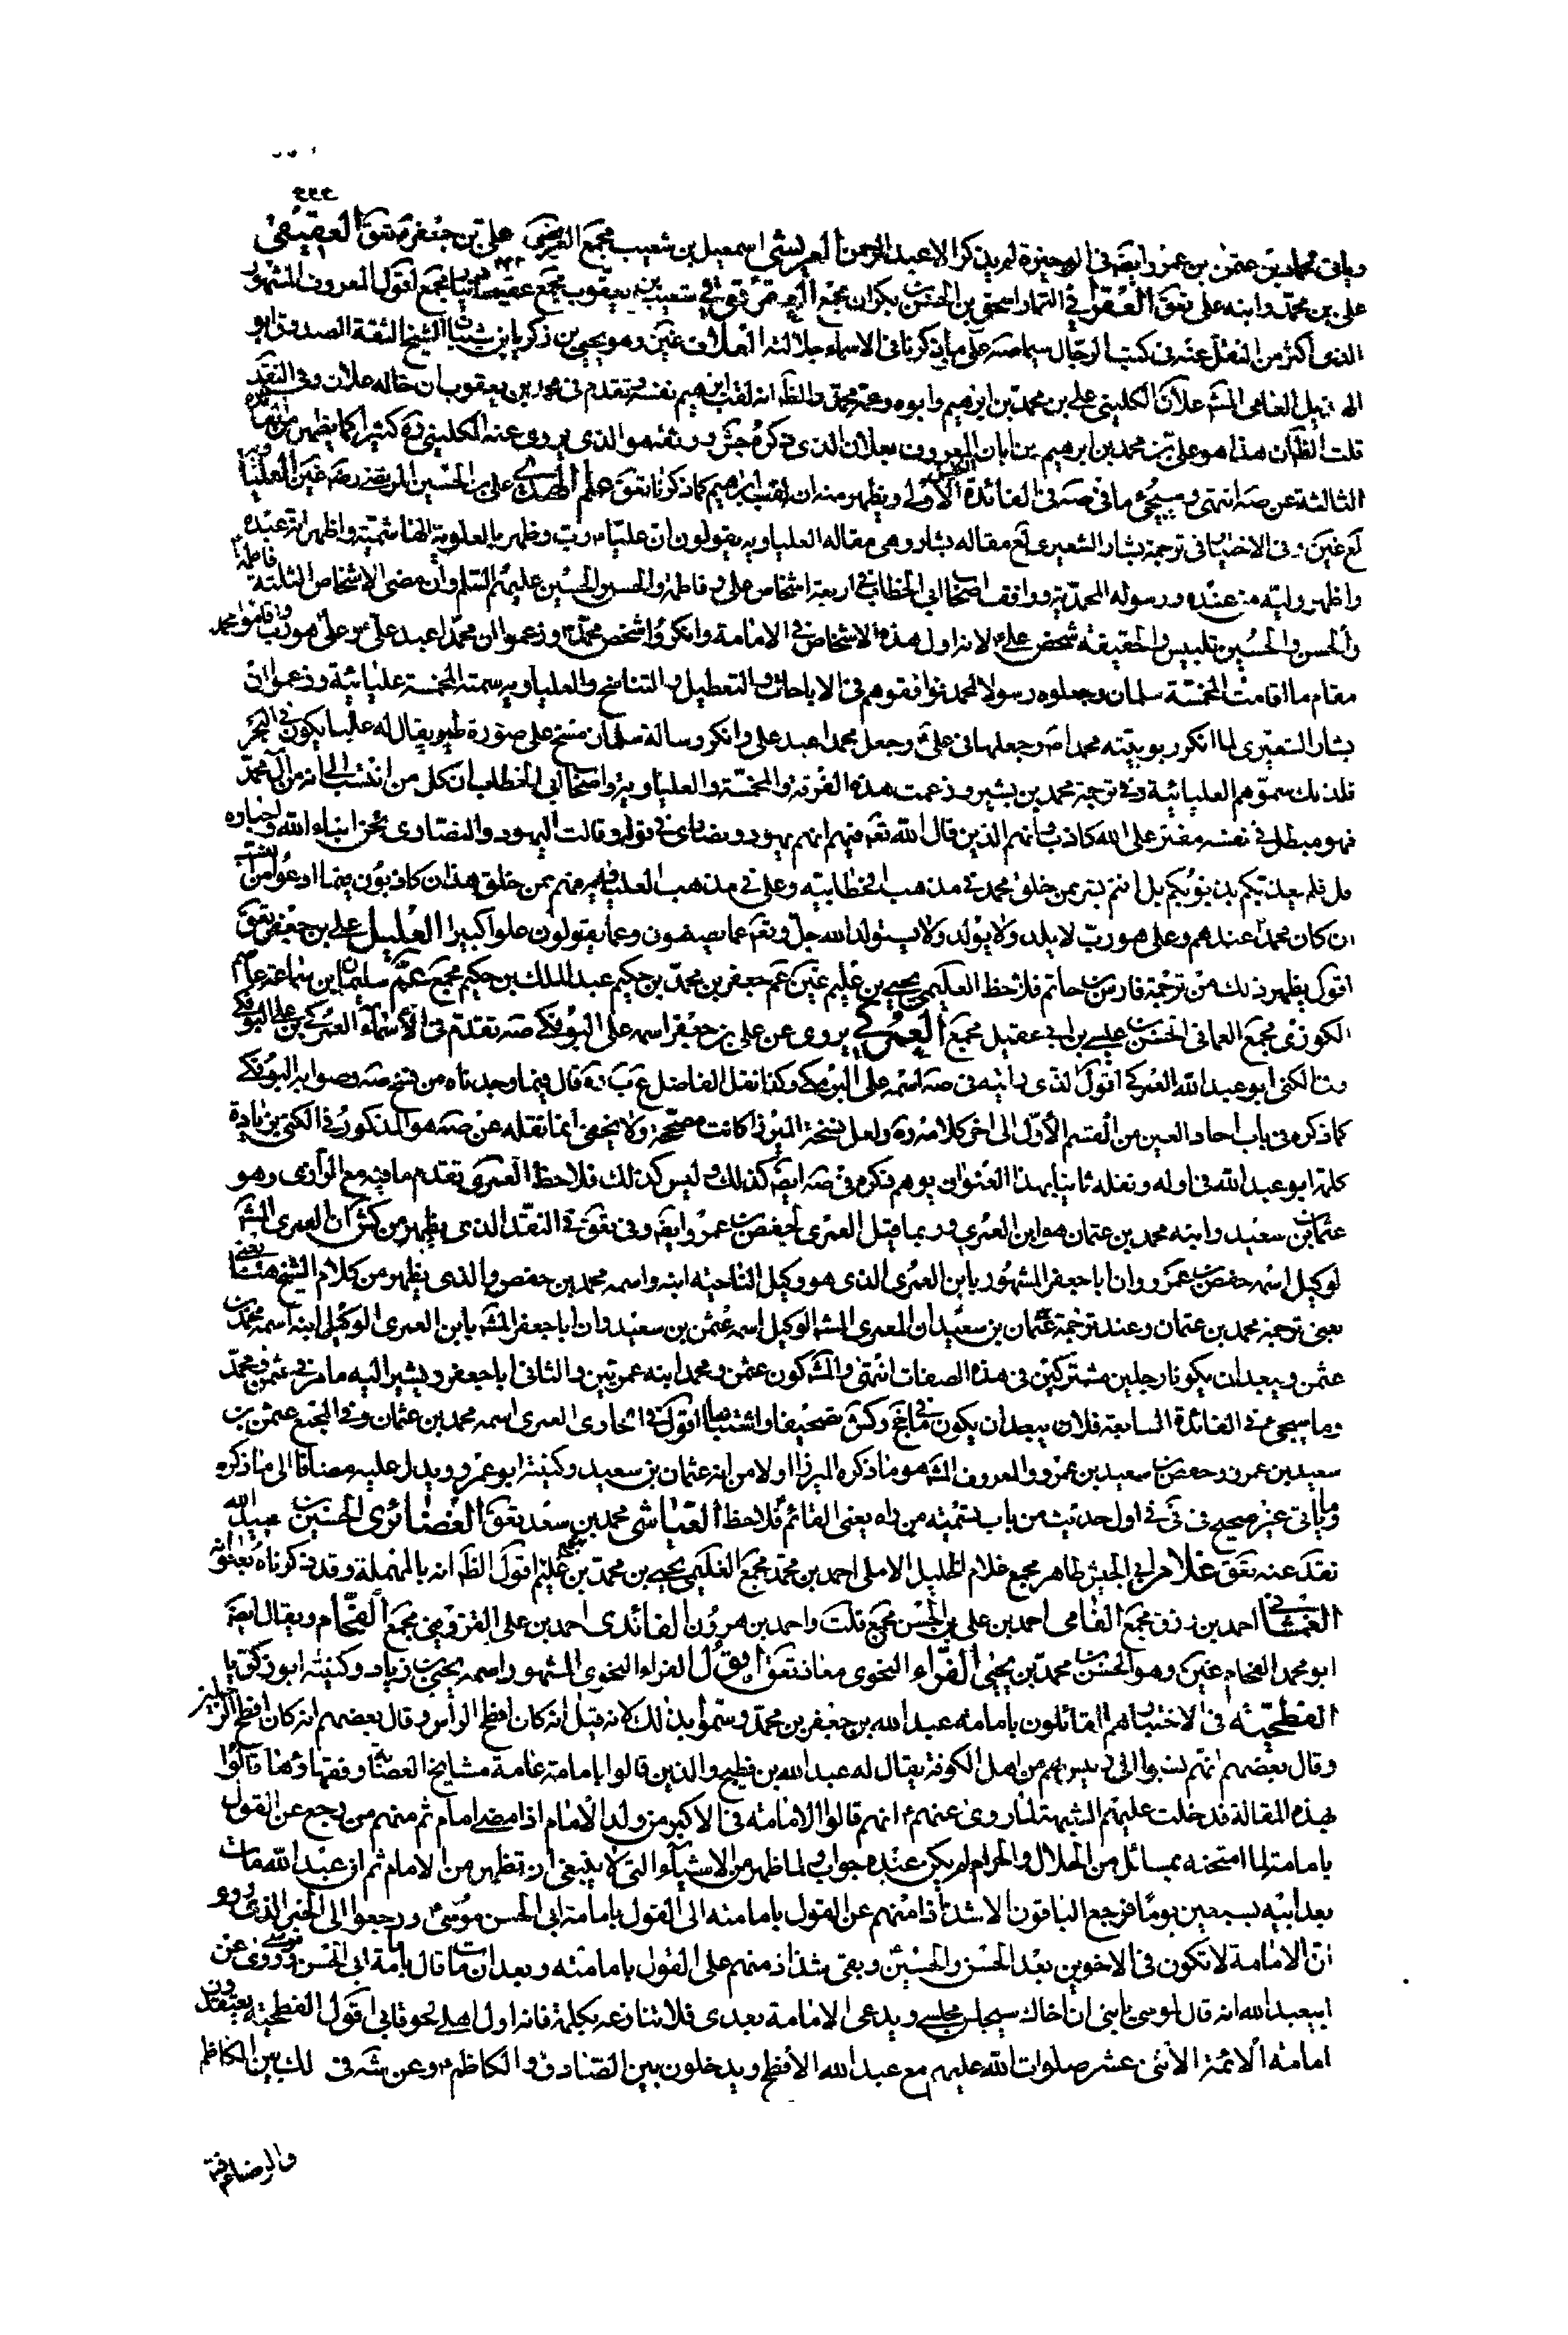 ٤٤٤
وياتى محمد بن عثمن بن عمرو ايضا فى الوجيزة لم يذكر الا عبد الرحمن العريشى اسمعيل بن شعيب مجمع العريضى على بن جعفر تعق العقيقى
على بن محمد وابنه على تعق العقرقوفى شعيب بن يعقوب مجمع اقول المعروف المشهور
الذى اكثر من النقل عنه فى كتب الرجال سيما صه على ما ذكرنا فى الاسماء جلالته العلاف غين وهو يحيى بن زكريا الشيخ الثقة الصدوق ابو
علان الكلينى على بن محمد بن ابرهيم وابوه وعمه محمد والظ انه لقب ابرهيم نفسه وتقدم فى محمد بن يعقوب ان خاله علان وفى النقد
قلت الظ ان هذا هو على بن محمد بن ابرهيم بن ابان المعروف بعلان الذى ذكره جش ووثقه هو الذى يروى عنه الكلينى ره كثيرا كما يظهر من
الثالثة عن صه انتهى وسيجئ ما فى صه فى الفائدة الاولى ويظهر منه ان لقب ابرهيم كما ذكرنا تعق علم الهدى على بن الحسين المرتضى رضه غين العليا
لع غين وفى الاختيار فى ترجمة بشار الشعيرى لع مقاله بشار وهى مقاله العلياويه يقولون ان عليا رب وظهر بالعلوية الهاشمية واظهر انه عبده
واظهر وليه من عنده ورسوله المحمدية ووافق اصحاب ابى الخطاب فى اربعة اشخاص على وفاطمة والحسن والحسين عليهم السلم وان معنى الاشخاص الثلثة فاطمة
والحسن والحسين تلبيس والحقيقة شخص على لانه اول هذه الاشخاص فى الامامة وانكروا شخص محمد وزعموا ان محمدا عبد على وعلى هو رب واقاموا محمد
مقام ما اقامت المخمسة سلمان وجعلوه رسولا لمحمد فوافقوهم فى الاباحات والتعطيل والتناسخ والعلياويه سمته المخمسة عليائية وزعموا ان
بشار الشعيرى لما انكر ربوبية محمد وجعلها فى على وجعل محمدا عبد على وانكر رسالة سلمان مسخ على صورة طير يقال له عليا يكون فى البحر
فلذلك سموهم العليائية وفى ترجمة محمد بن بشير وزعمت هذه الفرقة والمخمسة والعلياوية واصحاب ابى الخطاب ان كل من انتسب الى انه من آل محمد
فهو مبطل فى نفسه مفتر على الله كاذب وانهم الذين قال الله تعه فيهم انهم يهود ونصارى فى قوله وقالت اليهود والنصارى نحن ابناء الله واحباؤه
قل فلم يعذبكم بذنوبكم بل انتم بشر ممن خلق محمد فى مذهب الخطابيه وعلى فى مذهب العلياويه فهم ممن خلق هذان كاذبون فيما ادعوا من النسب
ان كان محمد عندهم وعلى هو رب لا يلد ولا يولد ولا يستولد الله جل وتعه عما يصفون وعما يقولون علوا كبيرا العليل على بن جعفر تعق
اقول يظهر ذلك من ترجمة فارس بن حاتم فلاحظ العليمى يحيى بن عليم غين عم جعفر بن محمد بن حكيم عبد الملك بن حكيم مجمع
الكوزى مجمع العمانى الحسن بن على بن ابى عقيل مجمع العمركى يروى عن على بن جعفر اسمه على البوفكى صه تقدم فى الاسماء العمركى بن على البوفكى
وفى الكنى ابو عبد الله العمركى اقول الذى رايته فى صه اسمه على البرمكى وكذا نقل الفاضل قال فيما وجدناه من نسخ صه وصوابه البوفكى
كما ذكره فى باب احاد العين من القسم الاول الى اخر كلامه ره ولعل نسخة الميرزا كانت مصححة ولا يخفى ايضا نقله عن صه هو المذكور فى الكنى بزيادة
كلمة ابو عبد الله فى اوله ونقله ثانيا بهذا العنوان يوهم ذكره فى صه ايضا كذلك وليس كذلك فلاحظ العمرى تقدم ما فيه مع الرازى وهو
عثمان بن سعيد وابنه محمد بن عثمان هو ابن العمرى وربما قيل العمرى لحفص بن عمرو ايضا وفى تعق فى النقد الذى يظهر من كش ان العمرى المشه
لوكيل اسمه حفص بن عمرو وان ابا جعفر المشهور بابن العمرى الذى هو وكيل الناحية ابنه واسمه محمد بن حفص والذى يظهر من كلام الشيخ هنا يعنى
يعنى ترجمة محمد بن عثمان وعند ترجمة عثمان بن سعيد ان العمرى المشه الوكيل اسمه عثمن بن سعيد وان ابا جعفر المشه بابن العمرى الوكيل ابنه اسمه محمد بن
عثمن ويبعد ان يكونا رجلين مشتركين فى هذه الصفات انتهى والمشه كون عثمن ومحمد ابنه عمريين والثانى ابا جعفر ويشير اليه ما مر فى عثمن ومحمد
وما سيجئ فى الفائدة السابعة فلا يبعد ان يكون ما فى جخ وكش تصحيفا واشتباها اقول فى الحاوى العمرى اسمه محمد بن عثمان وفى المجمع عثمن بن
سعيد بن عمرو وحفص بن سعيد بن عمرو والمعروف المشه هو ما ذكره الميرزا اولا من انه عثمان بن سعيد وكنيته ابو عمرو ويدل عليه مضافا الى ما ذكره
وياتى عنه صحيح فى فى اول حديث من باب تسمية من راه يعنى القائم فلاحظ العياشى محمد بن مسعود تعق الغضائرى الحسين بن عبيد الله
نقد عنه تعق غلام ابى الجيش طاهر مجمع غلام الخليل الاملى احمد بن محمد مجمع الغليمى يحيى بن محمد بن عليم اقول الظ انه بالمهملة وقد ذكرناه بعنوانه
الغمشانى احمد بن رزق مجمع الفامى احمد بن على بن الحسن مجمع قلت واحمد بن هرون الفائدى احمد بن على القزوينى مجمع الفحام ويقال ايضا
ابو محمد الفحام غين وهو الحسن بن محمد بن يحيى الفراء النحوى معاذ تعق اقول الفراء النحوى المشهور اسمه يحيى بن زياد وكنيته ابو زكريا
الفطحية فى الاختيار هم القائلون بامامة عبد الله بن جعفر بن محمد وسموا بذلك لانه قيل انه كان افطح الراس وقال بعضهم انه كان افطح الرجلين
وقال بعضهم انهم نسبوا الى رئيس لهم من اهل الكوفة يقال له عبد الله بن فطيح والذين قالوا بامامته عامة مشايخ العصابة وفقهاؤها قالوا
بهذه المقالة فدخلت عليهم الشبهة لما روى عنهم انهم قالوا الامامة فى الاكبر من ولد الامام اذا مضى امام ثم منهم من رجع عن القول
بامامته لما امتحنه بمسائل من الحلال والحرام لم يكن عنده جواب ولما ظهر من الاشياء التى لا ينبغى ان تظهر من الامام ثم ان عبد الله مات
بعد ابيه بسبعين يوما فرجع الباقون الا شذاذا منهم عن القول بامامته الى القول بامامة ابى الحسن موسى ورجعوا الى الخبر الذى روى
ان الامامة لا تكون فى الاخوين بعد الحسن والحسين وبقى شذاذ منهم على القول بامامته وبعد ان مات قال بامامة ابى الحسن موسى وروى عن
ابيعبد الله انه قال لموسى يا بنى ان اخاك سيجلس مجلسى ويدعى الامامة بعدى فلا تنازعه بكلمة فانه اول اهلى لحوقا بى اقول الفطحية يعتقدون
امامة الائمة الاثنى عشر صلوات الله عليهم مع عبد الله الافطح ويدخلون بين الصادق والكاظم وعن شه فى لك بين الكاظم
والرضا